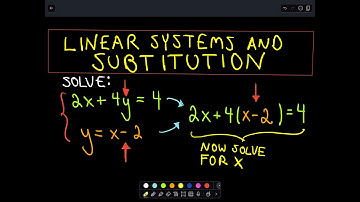 LINEAR SYSTEMS AND
SUBTITUTION
SOLVE:
2x + 4y = 4
y = x - 2
2x + 4(x - 2) = 4
NOW SOLVE
FOR X